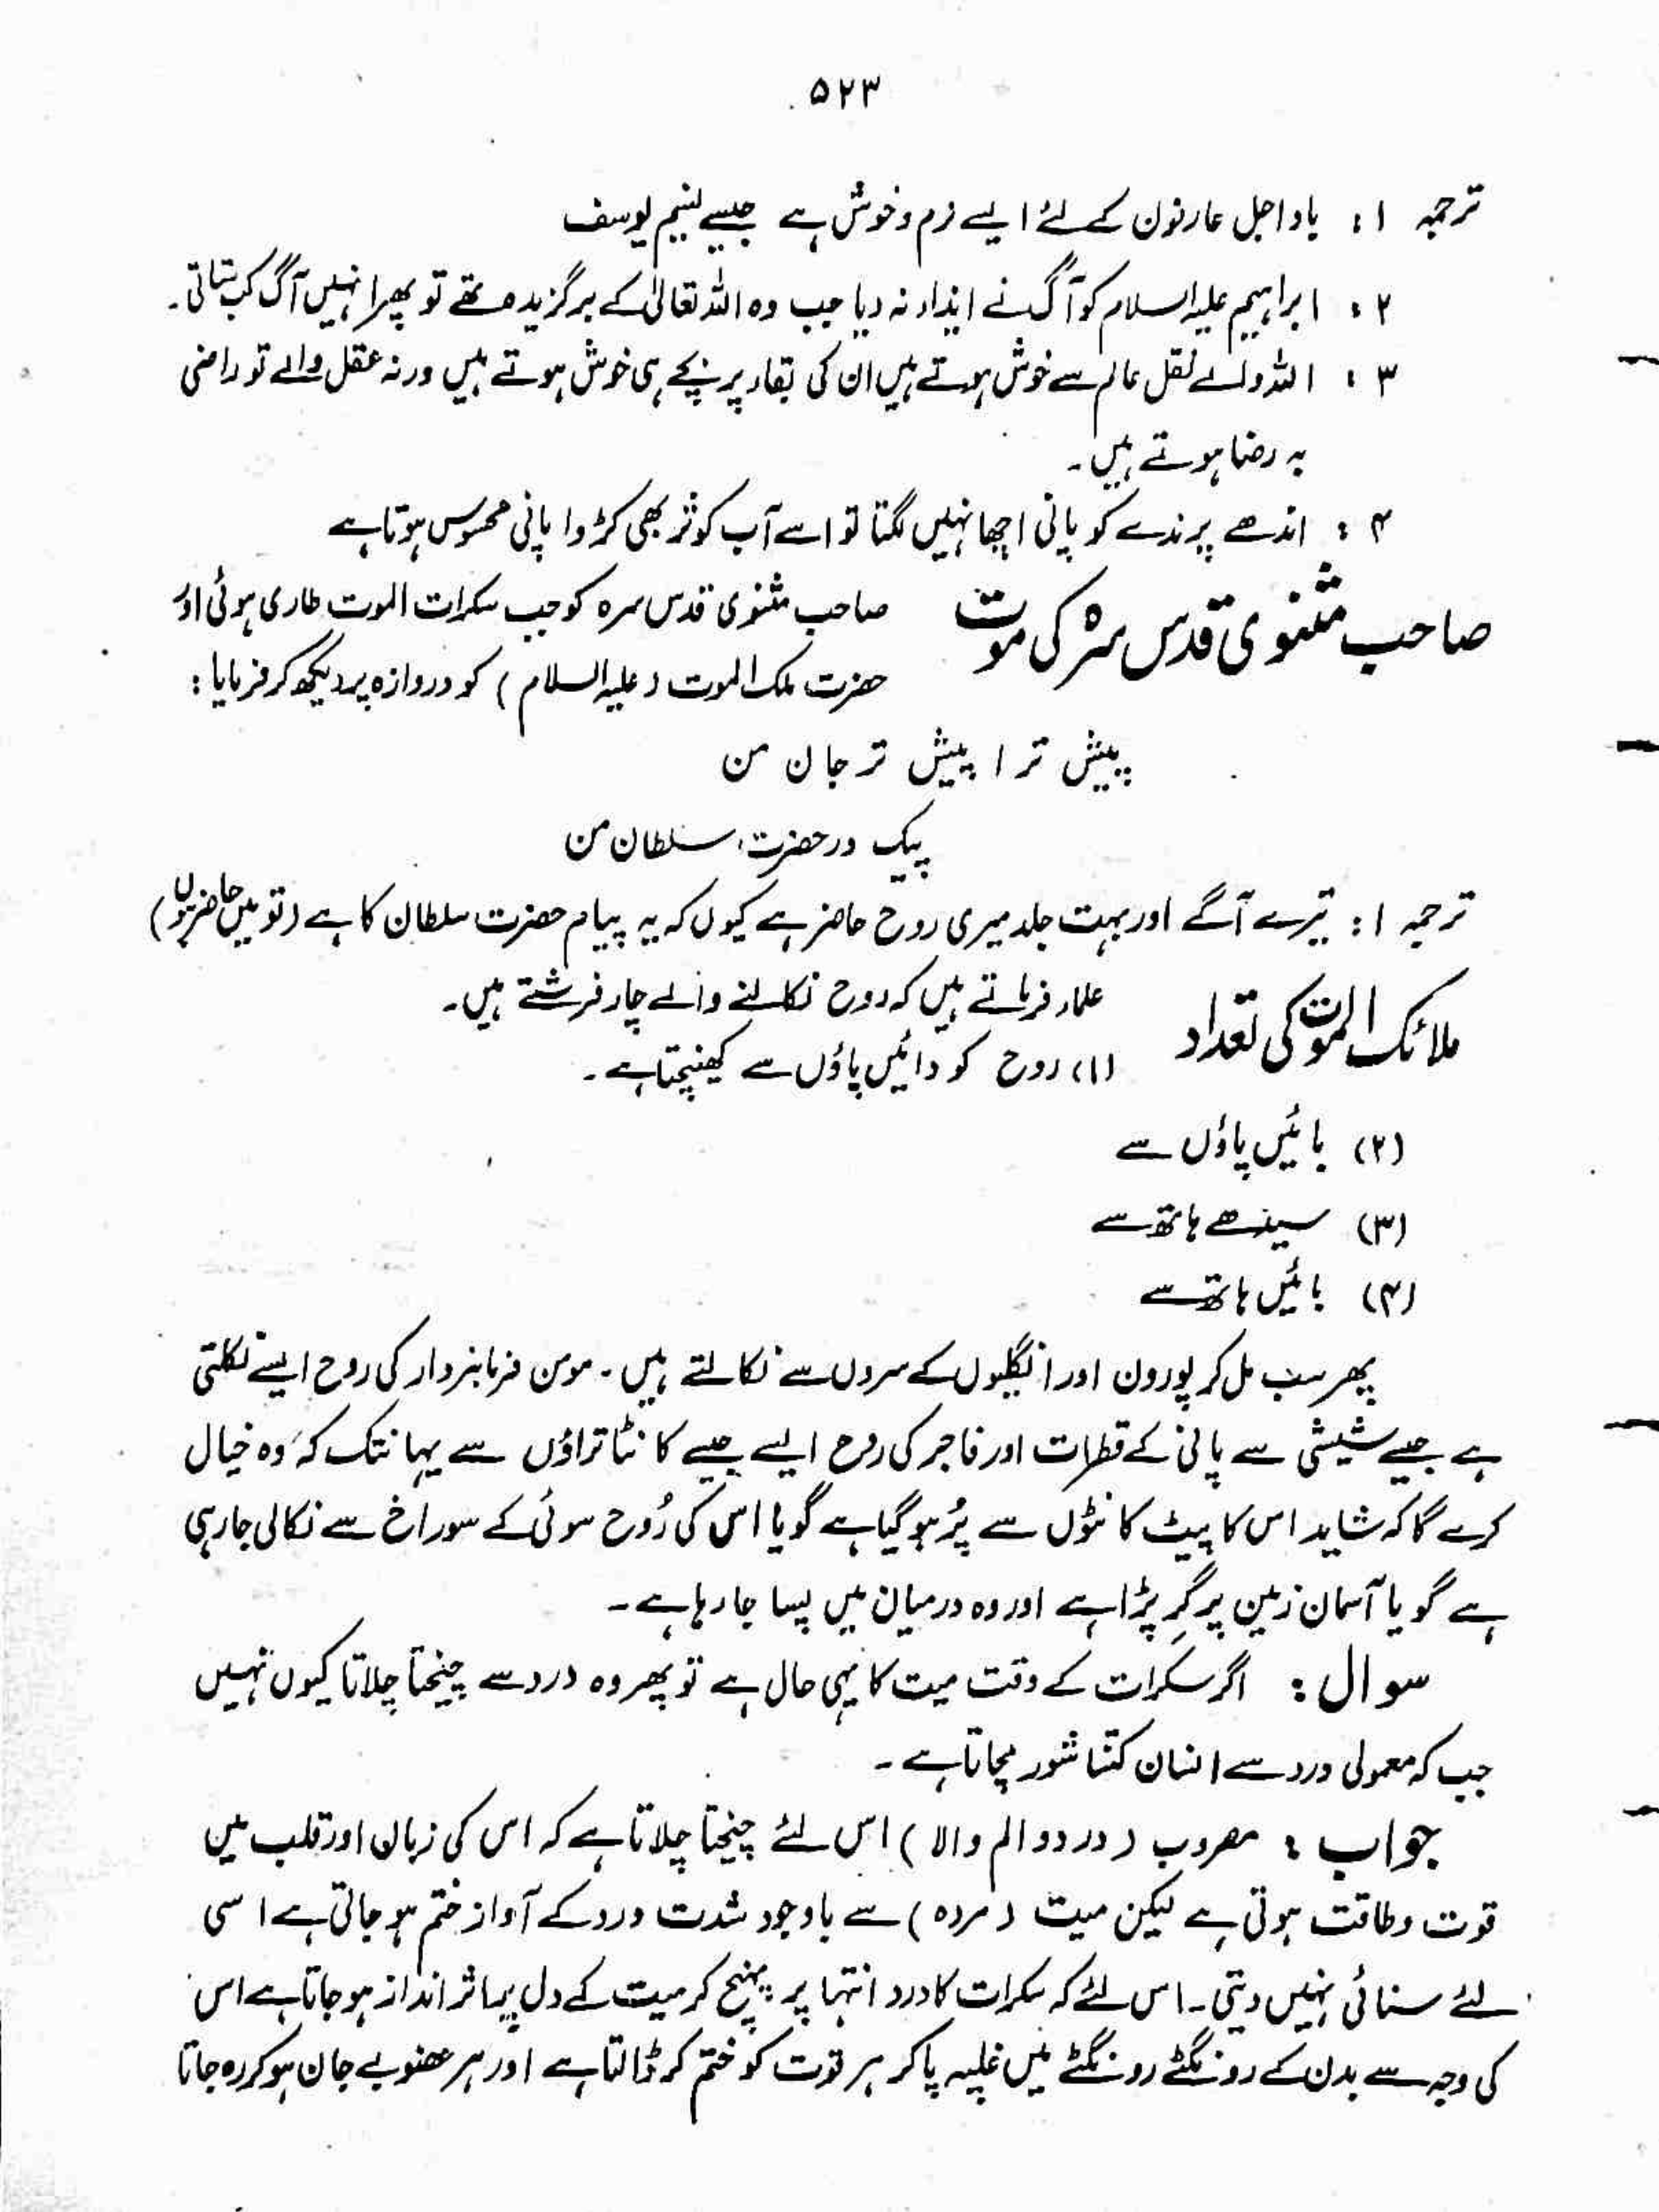 ۵۲۳
ترجمہ ۱: باد اجل عارفون کے لئے ایسے نرم و خوش ہے جیسے نسیم یوسف
۲: ابراہیم علیہ السلام کو آگ نے ایذاء نہ دیا جب وہ اللہ تعالیٰ کے برگزیدہ تھے تو پھر انہیں آگ کب ستاتی۔
۳: اللہ والے نقل عالم سے خوش ہوتے ہیں ان کی بقاء پر بچے ہی خوش ہوتے ہیں ورنہ عقل والے تو راضی
بہ رضا ہوتے ہیں۔
۴: اندھے پرندے کو پانی اچھا نہیں لگتا تو اسے آب کوثر بھی کڑوا پانی محسوس ہوتا ہے
صاحب مثنوی قدس سرہ کی موت
صاحب مثنوی قدس سرہ کو جب سکرات الموت طاری ہوئی اور
حضرت ملک الموت (علیہ السلام) کو دروازہ پر دیکھ کر فرمایا:
پیش تر ا پیش تر جان من
پیک در حضرت، سلطان من
ترجمہ ۱: تیرے آگے اور بہت جلد میری روح حاضر ہے کیوں کہ یہ پیام حضرت سلطان کا ہے (تو میں حاضر ہوں)
ملائک الموت کی تعداد
علماء فرماتے ہیں کہ روح نکالنے والے چار فرشتے ہیں۔
(۱) روح کو دائیں پاؤں سے کھینچتا ہے۔
(۲) بائیں پاؤں سے
(۳) سیدھے ہاتھ سے
(۴) بائیں ہاتھ سے
پھر سب مل کر پورون اور انگلیوں کے سروں سے نکالتے ہیں۔ مومن فرمانبردار کی روح ایسے نکلتی
ہے جیسے شیشی سے پانی کے قطرات اور فاجر کی روح ایسے جیسے کانٹا تراؤں سے یہانتک کہ وہ خیال
کرے گا کہ شاید اس کا پیٹ کانٹوں سے پُر ہو گیا ہے گویا اس کی رُوح سوئی کے سوراخ سے نکالی جا رہی
ہے گویا آسمان زمین پر گر پڑا ہے اور وہ درمیان میں پسا جا رہا ہے۔
سوال: اگر سکرات کے وقت میت کا یہی حال ہے تو پھر وہ درد سے چیختا چلاتا کیوں نہیں
جب کہ معمولی درد سے انسان کتنا شور مچاتا ہے۔
جواب: مضروب (درد و الم والا) اس لئے چیختا چلاتا ہے کہ اس کی زبان اور قلب میں
قوت و طاقت ہوتی ہے لیکن میت (مردہ) سے باوجود شدت درد کے آواز ختم ہو جاتی ہے اسی
لئے سنائی نہیں دیتی۔ اس لئے کہ سکرات کا درد انتہا پر پہنچ کر میت کے دل پر اثر انداز ہو جاتا ہے اس
کی وجہ سے بدن کے رونگٹے رونگٹے میں غلبہ پا کر ہر قوت کو ختم کر ڈالتا ہے اور ہر عضو بے جان ہو کر رہ جاتا